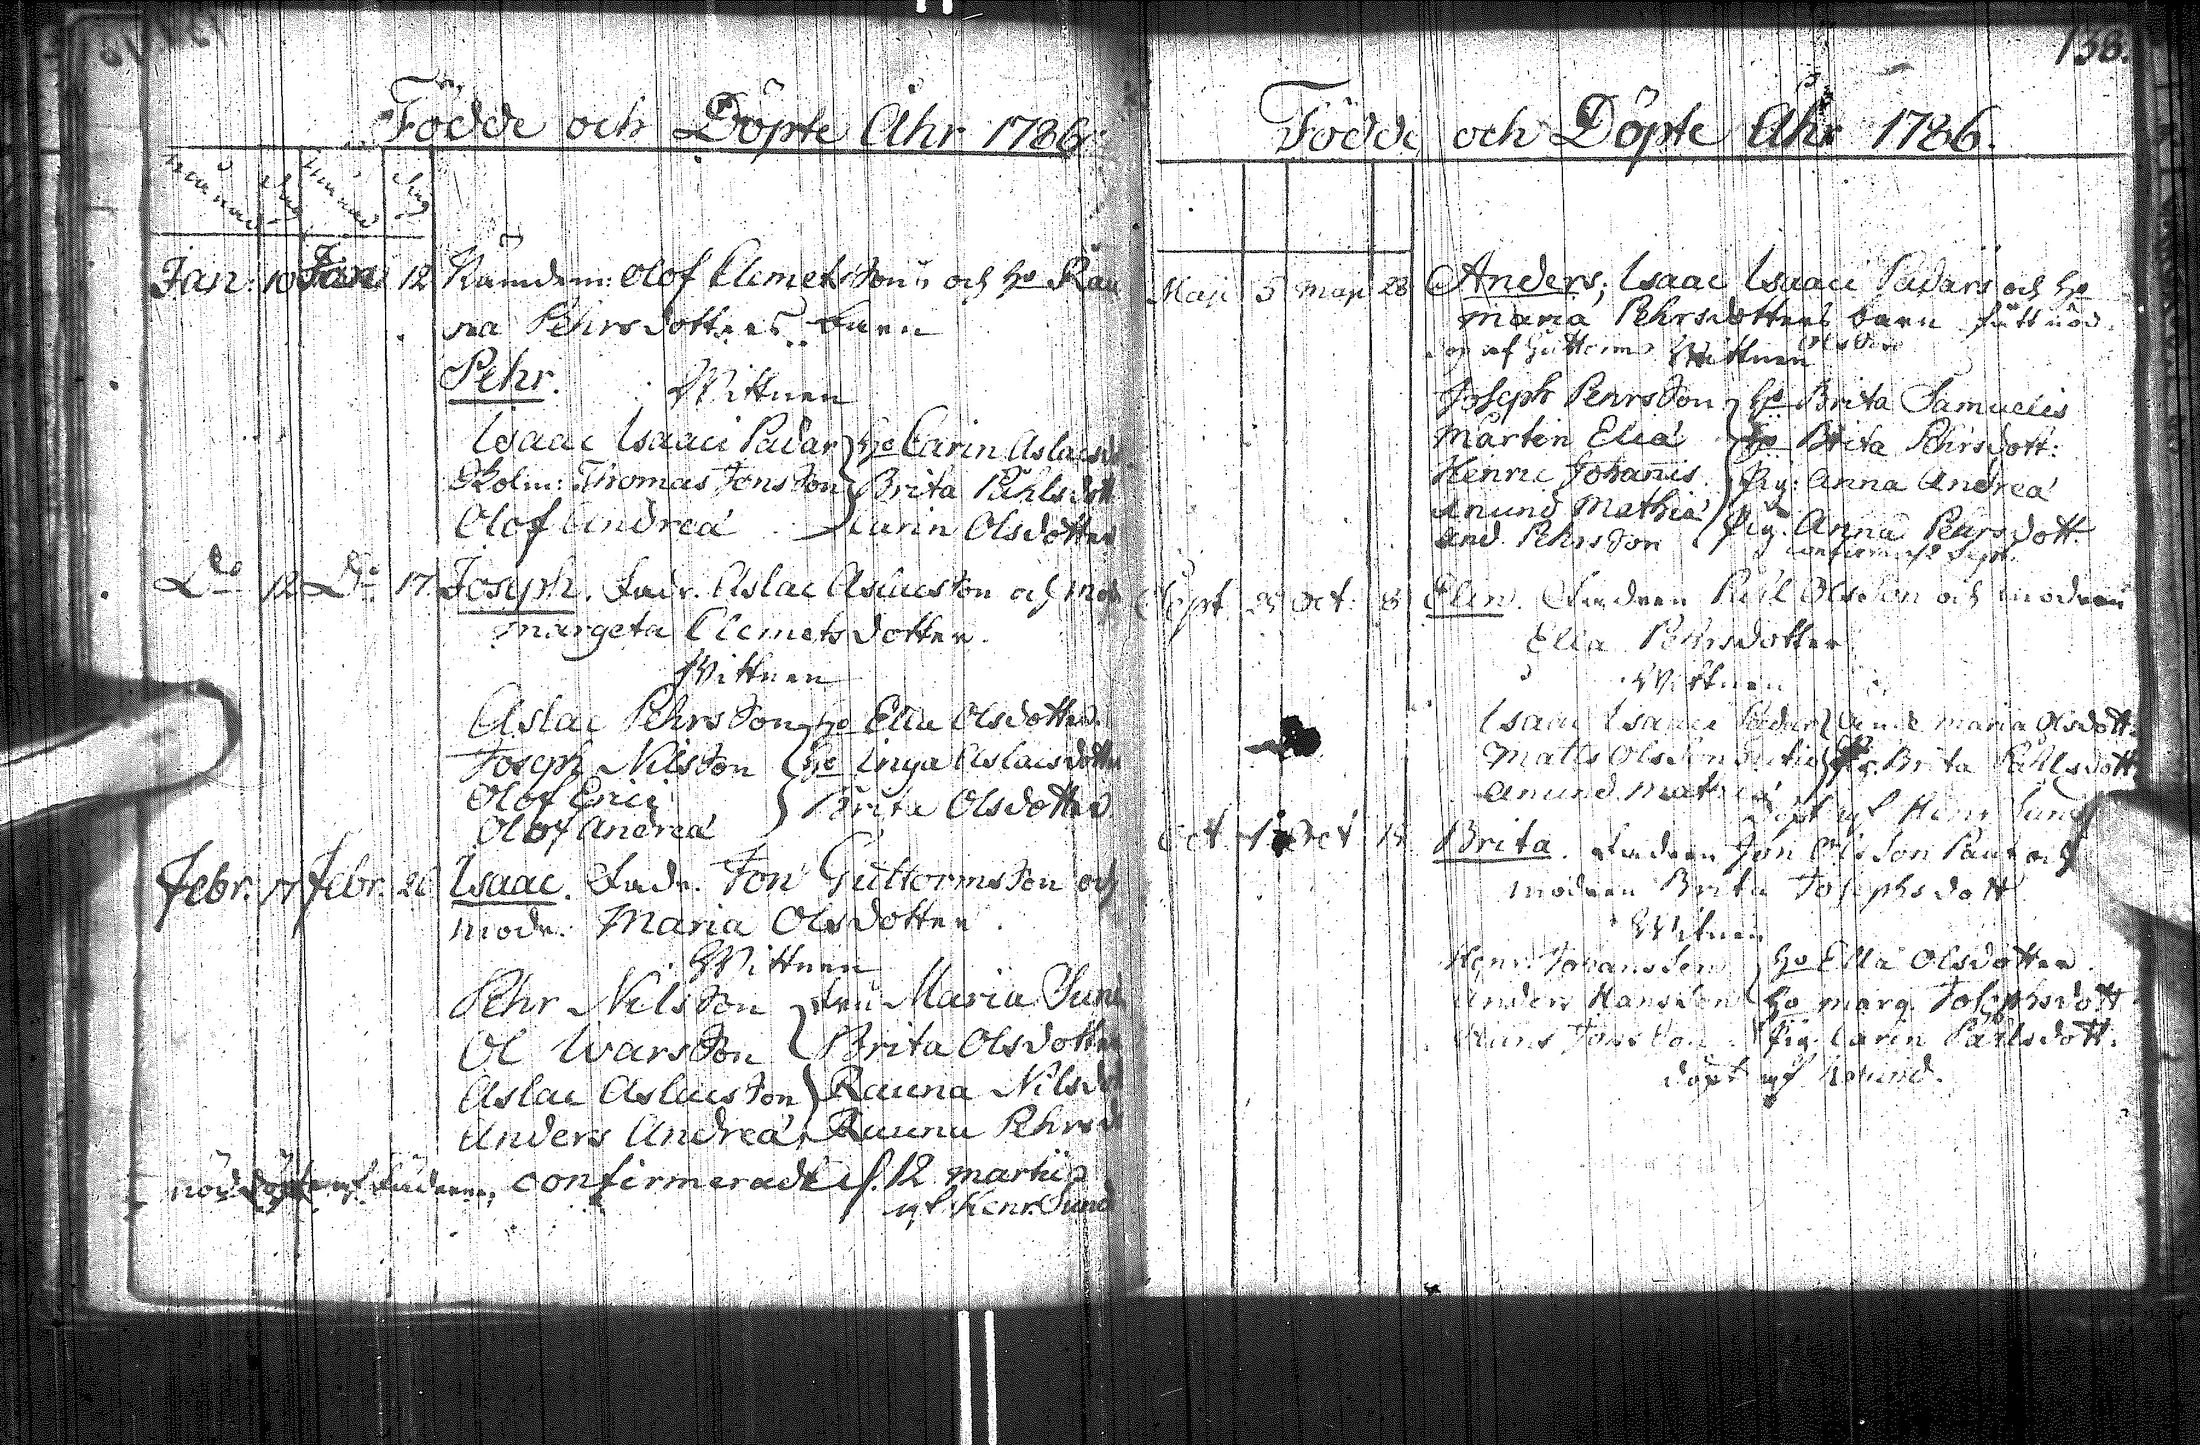 138.
Födde och Döpte Åhr 1786.
månad dag månad dag
Jan: 10 Jan: 12 Nämdem: Olof Clemetsson och H:o Rau
na Pehrsdotters barn
Pehr. Wittnen
Isaac Isaaci Padar H:o Carin Aslacsd.
Skolm: Thomas Jonsson Brita Påhlsdott
Olof Andreá Karin Olsdotter
D:o 12 D:o 17 Joseph. Fadr. Aslac Aslacsson och mod
Margeta Clemetsdotter.
Wittnen
Aslac Pehrsson H:o Ella Olsdotter
Joseph Nilsson H:o Inga Aslacsdotter
Olof Erici Brita Olsdotter
Olof Andreá
Febr. 17 Febr. 26 Isaac. Fadr. Jon Guttormsson och
modr. Maria Olsdotter.
Wittnen
Pehr Nilsson fru Maria Sund
Ol Warsson Brita Olsdotter
Aslac Aslacsson Rauna Nilsd
Anders Andreá Rauna Pehrsd
nöddöpt af fadren, confirmeradt d. 12 martii
af Henr. Sund
Födde och Döpte Åhr 1786.
Maji 5 Maji 28 Anders, Isaac Isaaci Padars och H:o
Maria Pehrsdotters barn fått nöd
dop af Guttorm Olsson
Wittnen
Joseph Pehrsson H:o Brita Samuelis
Mårten Eliá H:o Brita Pehrsdott:
Henric Johanis Pig: Anna Andreá
Amund Mathiá Pig. Anna Pehrsdott.
And. Pehrsson
Sept. 25 Oct. 8 Elin. Fadren Påhl Olsson och modren
Ella Pehrsdotter
Wittnen
Isaac Isaaci Padar Maria Olsdott:
Matts Olsson Brita Påhlsdott
Amund Mathiá
döpt af Henr. Sund
Oct. Oct. Brita. Fadren Jon Olsson och
modren Brita Josephsdott
Witnen
Henr. Johansson H:o Ella Olsdotter.
Anders Hansson H:o Marg. Josephsdott
Hans Jonsson Pig. Carin Påhlsdott.
döpt af